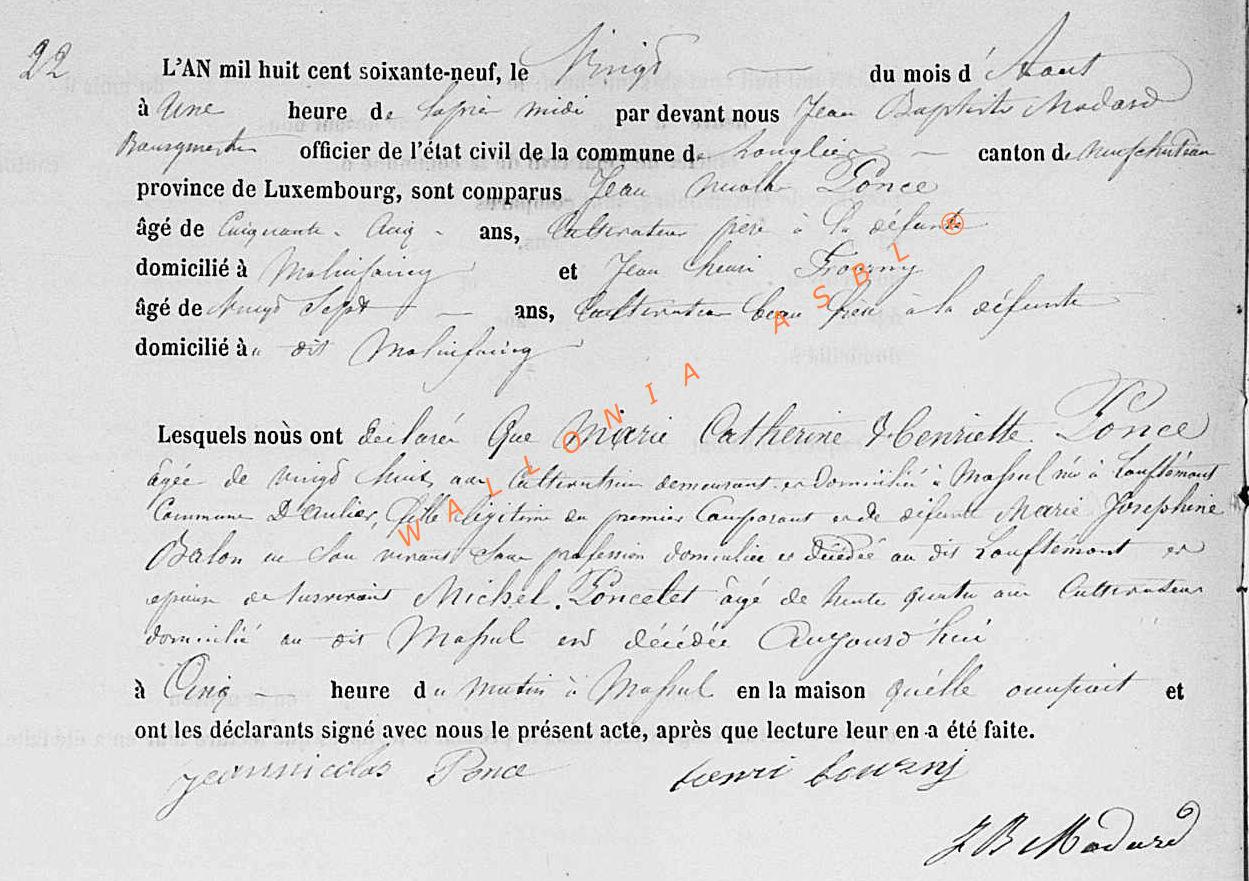 22
L'AN mil huit cent soixante-neuf, le Vingt du mois d'Aout
à Une heure de laprès midi par devant nous Jean Baptiste Modard
Bourgmestre officier de l'état civil de la commune de Longlier canton de Neufchateau
province de Luxembourg, sont comparus Jean Nicolas Ponce
âgé de Cinquante-Cinq ans, Cultivateur père à la défunte
domicilié à Molinfaing et Jean Henri
âgé de Vingt Sept ans, Cultivateur beau frère à la défunte
domicilié à u dit Molinfaing
Lesquels nous ont déclaré Que Marie Catherine Henriette Ponce
âgée de vingt huit ans Cultivatrice demeurant et Domicilié à Massul né à Louftémont
Commune D'Anlier, fille légitime du premier Comparant et de défunte Marie Josephine
Balon en Son vivant Sans profession domiciliée et décédée au dit Louftémont et
épouse de Survivant Michel Poncelet âgé de trente quatre ans Cultivateur
domicilié au dit Massul est décédée Aujourd'hui
à Cinq heure du matin à Massul en la maison quélle occupait et
ont les déclarants signé avec nous le présent acte, après que lecture leur en a été faite.
jeannicolas Ponce henri
J B Modard
WALLONIA ASBL ®